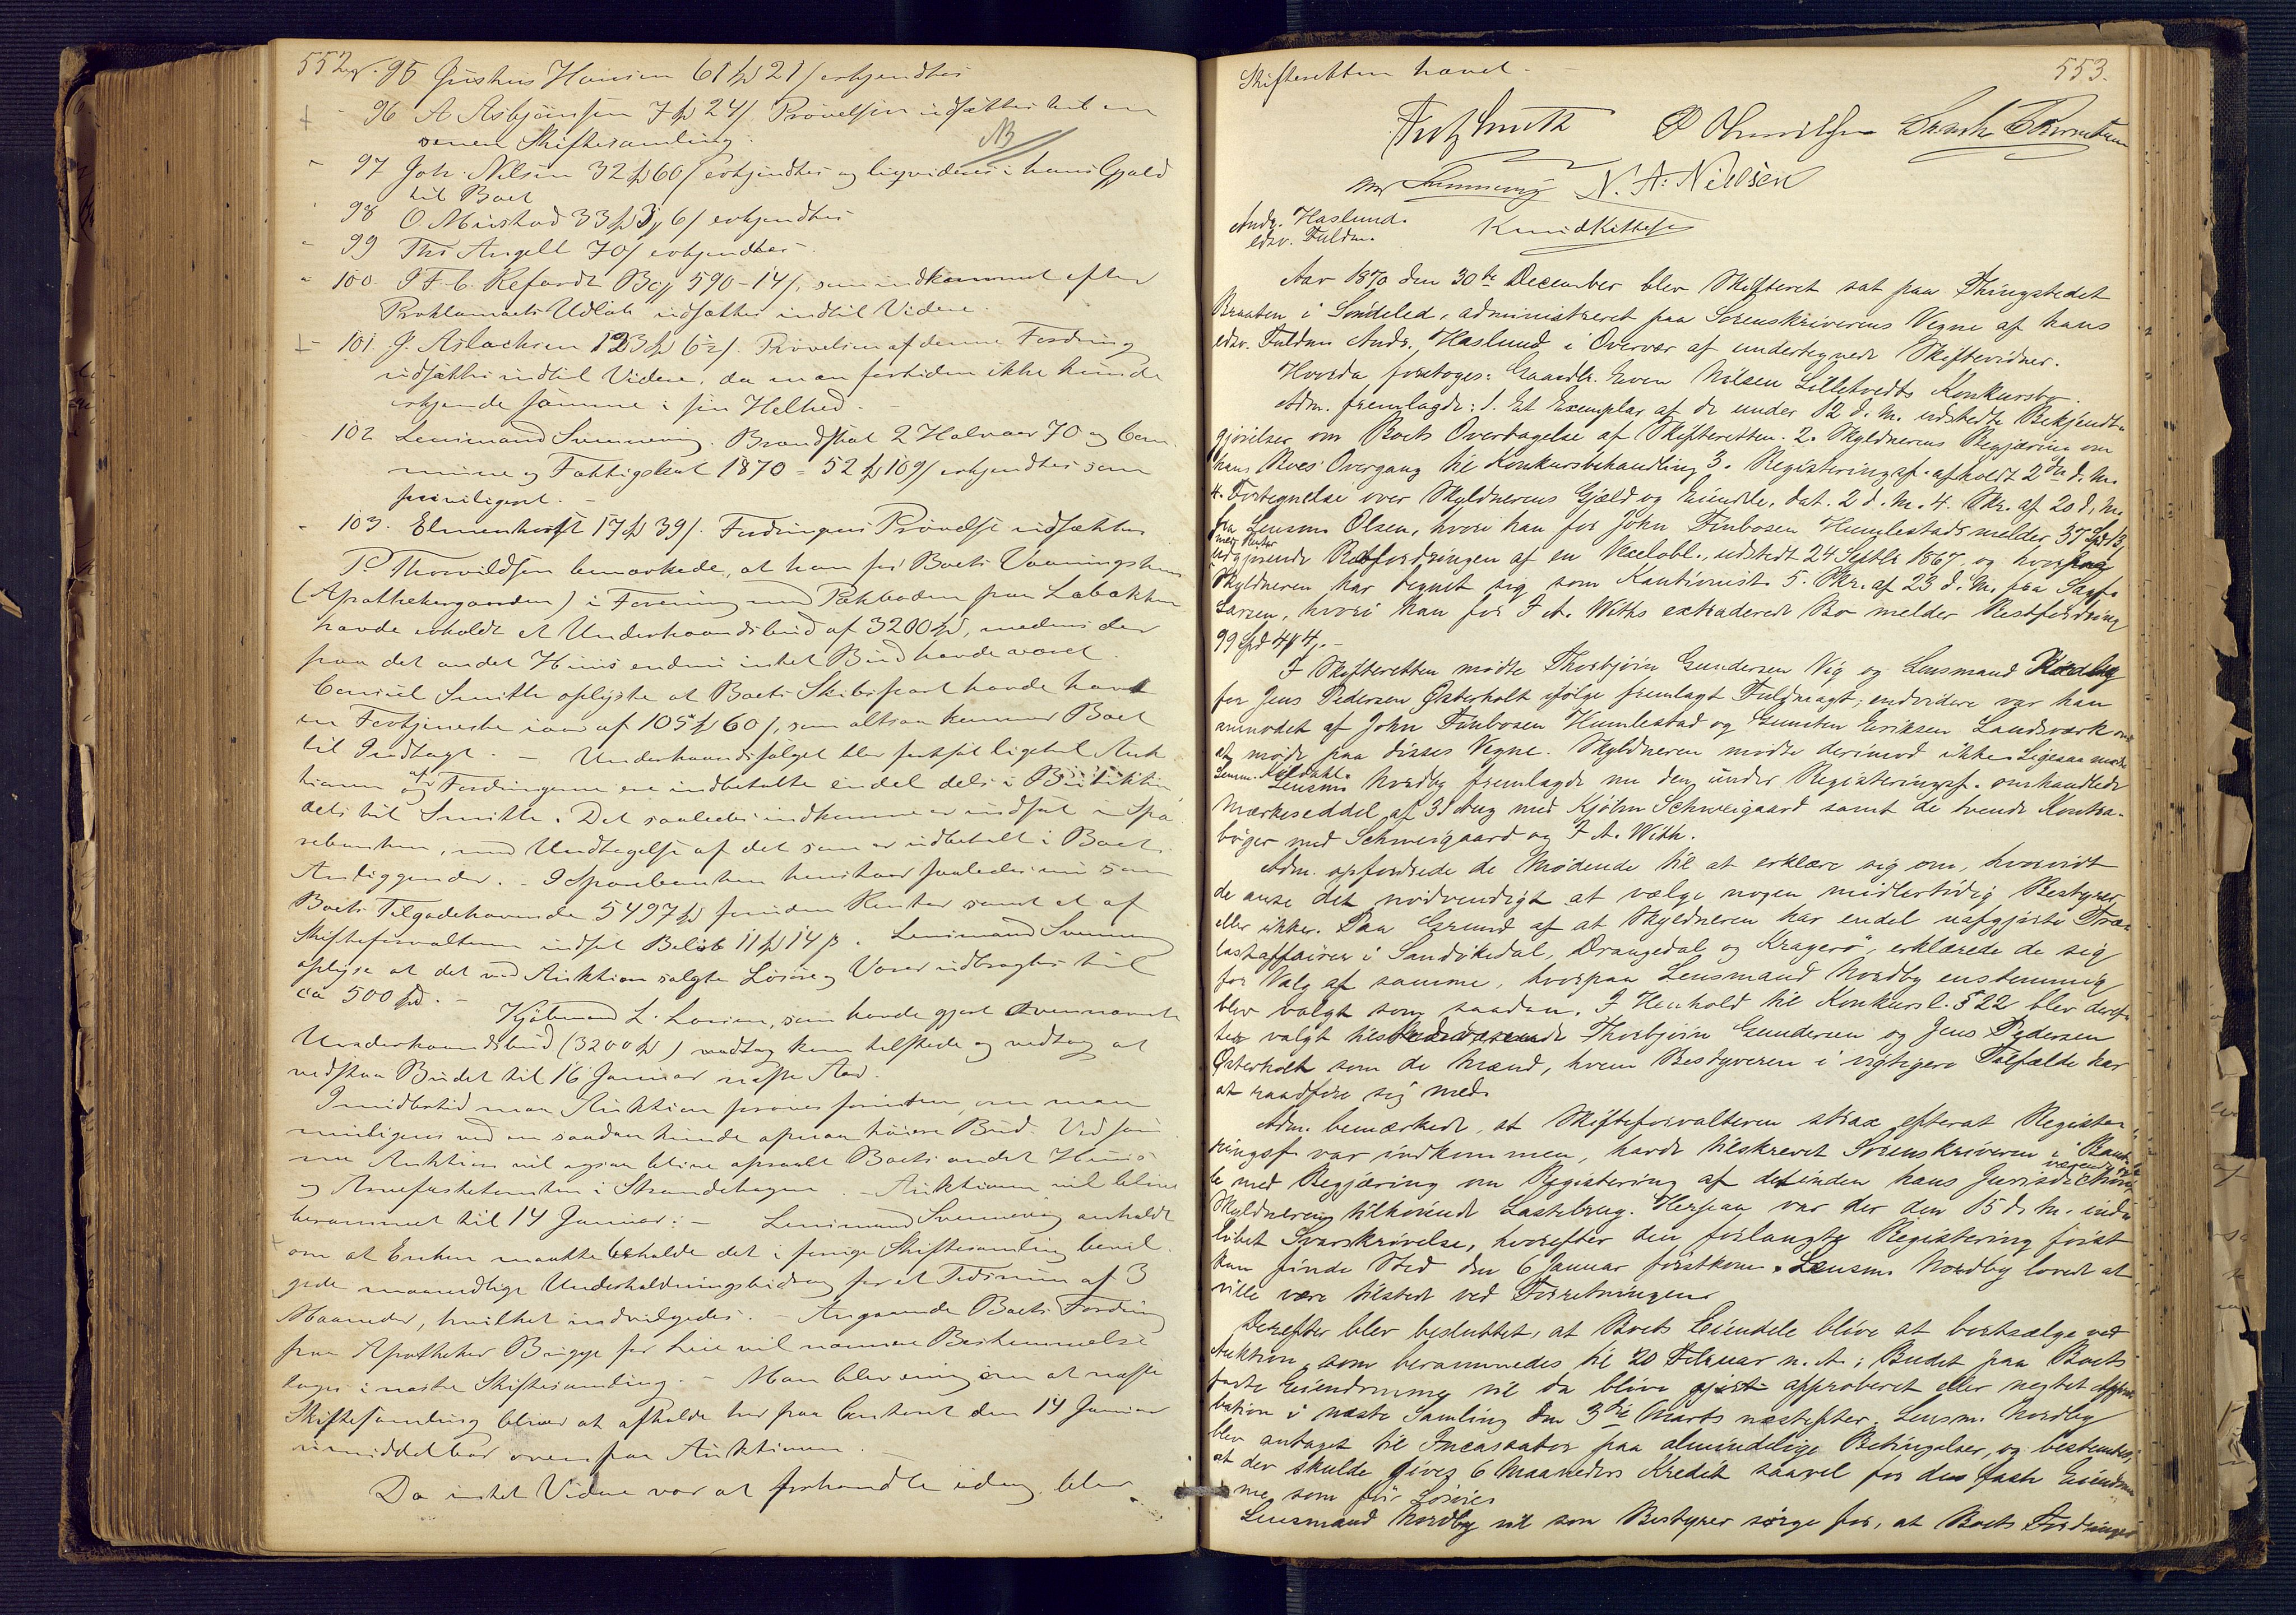 552
No. 95 Gusthus Hansen 61 spd 21 s erkjendtes
- 96 A Asbjörnsen 7 spd 24 s Prövelsen udsættes til en
senere Skiftesamling.
NB
- 97 Joh. Nilsen 32 spd 60 s erkjendtes og liqvideres i hans Gjæld
til Boet
98 O. Mustad 33 spd 3 6 s erkjendtes
- 99 Ths Angell 70 s erkjendtes.
- 100. I. F. C. Refardt Bco 590-14 s, som indkommet efter
Proklamaets Udløb udsættes indtil Videre.
- 101. J. Aslachsen 123 spd 6½ s. Prøvelsen af denne Fordring
udsættes indtil Videre, da man fortiden ikke kunde
erkjende samme i sin Helhed.
- 102 Lensmand Svenneving. Brandskat 2 Halvaar 70 og Com
mune og Fattigskat 1870 = 52 spd 109 s erkjendtes som
priviligeret. -
- 103. Elmenhorst 17 spd 39 s. Fordringens Prøvelse udsættes
P Thorvildsen bemærkede, at han for Boets Vaaningshus
(Apothekergaarden) i Forening med Pakboden paa Labakken
havde erholdt et Underhaandsbud af 3200 spd, medens der
paa det andet Huus endnu intet Bud havde været.
Consul Smith oplyste at Boets Skibspart havde havt
en Fortjeneste iaar af 105 spd 60 s, som altsaa kommer Boet
til Indtægt. - Underhaandssalget blev fortsat ligetil Auk
tionen og af Fordringerne ere indbetalte endel dels i Butikken,
dels til Smith. Det saaledes indkomne er indsat i Spa
rebanken, med Undtagelse af det som er udbetalt i Boets
Anliggender. - I Sparebanken henstaar saaledes nu som
Boets Tilgodehavende 5497 spd foruden Renter samt et af
Skifteforvalteren indsat Beløb 11 spd 14 s. Lensmand Svenneving
oplyste at det ved Auktion solgte Løsøre og Varer udbragtes til
ca 500 spd. -
Kjøbmand L. Larsen, som havde gjort ovennævnte
Underhaandsbud (3200 spd) kom tilstede og vedtog at
vedstaa Budet til 16 Januar næste Aar.
Imidlertid maa Auktion prøves forinden, om man
muligens ved en saadan kunde opnaa høiere Bud. Ved sam
me Auktion vil ogsaa blive opraabt Boets andet Huus
og Arvefæstetomten i Strandehagen. - Auktionen vil blive
berammet til 14 Januar. - Lensmand Svenneving anholdt
om at Enken maatte beholde det i forrige Skiftesamling bevil
gede maanedlige Underholdningsbidrag for et Tidsrum af 3
Maaneder, hvilket indvilgedes. - Angaaende Boets Fordring
paa Apotheker Brygge for Leie vil nærmere Bestemmelse
tages i næste Skiftesamling. - Man blev enig om at næste
Skiftesamling bliver at afholde her paa Contoret den 14 Januar
umiddelbar ovenpaa Auktionen. -
Da intet Videre var at forhandle idag, blev
553.
Skifteretten hævet. -
Fritz Smith P Thorvildsen
Svenneving N. A. Nielsen
Andr. Haslund.
edsv. Fuldm.
Knud Kittelsen
Aar 1870 den 30te December blev Skifteret sat paa Thingstedet
Braaten i Søndeled, administreret paa Sorenskriverens Vegne af hans
edsv. Fuldm. Andr. Haslund i Overvær af undertegnede Skiftevidner.
Hvorda foretoges: Gaardbr. Even Nilsen Lilletvedts Konkursbo.
Adm. fremlagde: 1. Et Exemplar af de under 12 d. M. udstedte Bekjendt-
gjørelser om Boets Overtagelse af Skifteretten. 2. Skyldnerens Begjæring om
hans Boes Overgang til Konkursbehandling 3. Registeringsf. afholdt 2den d. M.
4. Fortegnelse over Skyldnerens Gjæld og Eiendele, dat. 2 d. M. 4. Skr. af 20 d. M.
fra Lensm. Olsen, hvori han for John Finbosen Humlestad melder 37 Spd 13 s
med Renter
udgjørende Restfordringen af en Vexelobl., udstedt 24 Septbr 1867, og hvorpaa
Skyldneren har tegnet sig som Kautionist. 5. Skr. af 23 d. M. fra Sagf.
Larsen, hvori han for F. A. Withs extraderede Bo melder Restfordring
99 Spd 4 4 s. -
I Skifteretten mødte Thorbjørn Gundersen Vig og Lensmand Nordby
for Jens Pedersen Østerholt ifølge fremlagt Fuldmagt; endvidere var han
anmodet af John Finbosen Humlestad og Gunsten Eriksen Landsværk om
at møde paa disses Vegne. Skyldneren mødte derimod ikke. Ligesaa mødte
Lensm. Kildahl.
Lensm. Nordby fremlagde nu den under Registeringsf. omhandlede
Mærkeseddel af 31 Aug med Kjøbm. Schweigaard samt de tvende Kontra-
bøger med Schweigaard og F. A. With.
Adm. opfordrede de Mødende til at erklære sig om, hvorvidt
de anse det nødvendigt at vælge nogen midlertidig Bestyrer
eller ikke. Paa Grund af at Skyldneren har endel uafgjorte Træ-
lastaffairer i Sandøkedal, Drangedal og Kragerø, erklærede de sig
for Valg af samme, hvorpaa Lensmand Nordby enstemmig
blev valgt som saadan. I Henhold til Konkursl. § 22 blev deref-
ter valgt tilstedeværende Thorbjørn Gundersen og Jens Pedersen
Østerholt som de Mænd, hvem Bestyreren i vigtigere Tilfælde har
at raadføre sig med.
Adm. bemærkede, at Skifteforvalteren strax efterat Register-
ingsf. var indkommen, havde tilskrevet Sorenskriveren i Bamb-
le med Begjæring om Registering af det inden hans Jurisdiktion værende
Skyldneren tilhørende Lastebrug. Herpaa var der den 15 d. M. ind-
løbet Svarskrivelse, hvorefter den forlangte Registering først
kan finde Sted den 6 Januar førstkom. Lensm. Nordby lovede at
ville være tilstede ved Forretningen.
Derefter blev besluttet, at Boets Eiendele blive at bortsælge ved
Auktion, som berammedes til 20 Februar n. A.; Budet paa Boets
faste Eiendomme vil da blive gjort approberet eller negtet Appro-
bation i næste Samling den 3die Marts næstefter. Lensm. Nordby
blev antaget til Incassator paa almindelige Betingelser, og bestemtes,
at der skulde gives 6 Maaneders Kredit saavel for den faste Eiendom
me, som for Løsøre.
Lensmand Nordby vil som Bestyrer sørge for, at Boets Fordringer